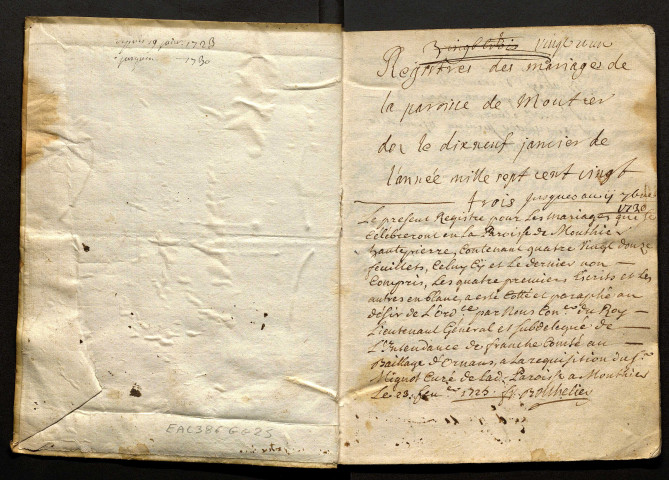 depuis 19 janv. 1723
jusqu'en 1730
EAC386 GG25
vingt un
Registres des mariages de
la paroisse de Moutier
dez le dixneuf janvier de
l'année mille sept cent vingt
trois jusques au
1730
Le present Registre pour Les mariages que se
Celebreront en La Paroisse de Mouthier
hautepierre, Contenant quatre Vingt douze
feuillets, Celuy Cy et Le dernier non
Compris, Les quatre premiers Escrits et Les
autres en blanc, a esté Cotté et paraphé au
désir de L'ord.ce par Nous Con.er du Roy
Lieutenant Général et subdelegué de
L'Intendance de franche Comté au
Bailliage d'Ornans, a La requisition du S.r
Mignot Curé de Lad. Paroisse a Mouthier
Le 23. 1725